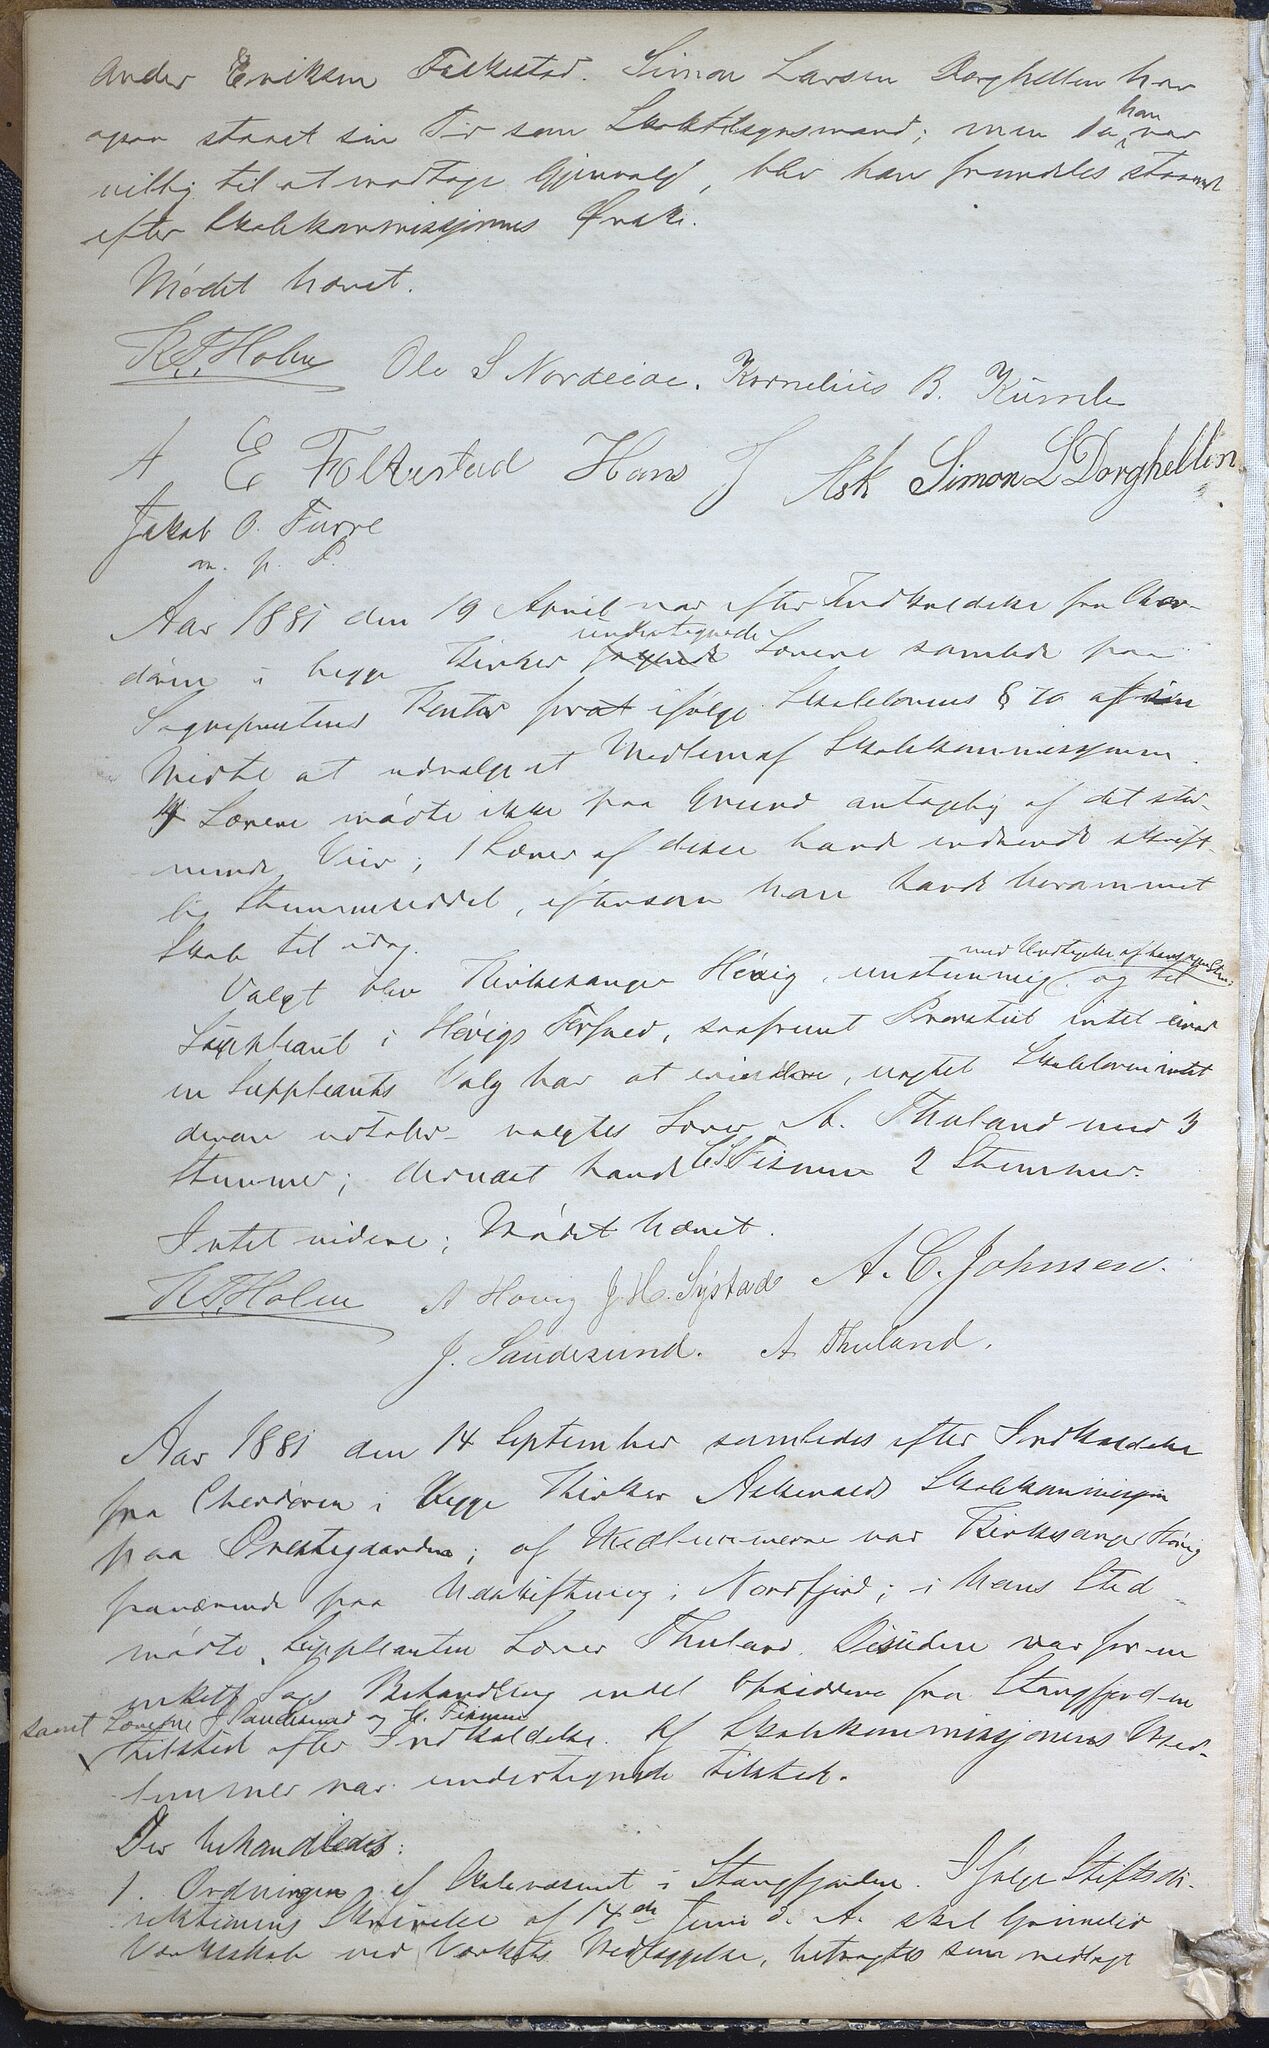 Ander Eriksen Folkestad. Simon Larsen Dorghellen har
ogsaa staaet sin Tid som Skoletilsynsmand; men da han var
villig til at modtage Gjenvalg, blev han fremdeles staaende
efter Skolekommissjonens Ønske.
Mødet hævet.
K.T. Holm Ole S Nordeide. Kornelius B. Kumle
A E Folkestad Hans J Ask Simon L Dorghellin
Jakob O. Furre
m. p. P.
Aar 1881 den 19 April var efter Indkaldelse fra Chor-
døren i begge Kirker undertegnede Lærere samlede paa
Sognepræstens Kontor for at ifølge Skolelovens § 70 af sin
Midte at udvalge et Medlem af Skolekommissjonen.
4 Lærere mødte ikke paa Grund antagelig af det stor-
mende Veir; 1 Lærer af disse havde indsendt skrift-
lig Stemmeseddel, eftersom han havde berammet
Skole til idag.
Valgt blev Kirkesanger Høvig enstemmig med Undtagelse af hans egen Stemme og til
Suppleant i Høvigs Forfald, saafremt Provstiet intet imod
en Suppleants Valg har at erindre, uagtet Skoleloven intet
derom udtaler - valgtes Lærer A. Thuland med 3
Stemmer; dernæst havde Fismen 2 Stemmer.
Intet videre; Mødet hævet.
K.T. Holm A Høvig J. H. Systad A. C. Johnsen.
J. Sandesund. A Thuland.
Aar 1881 den 14 September samledes efter Indkaldelse
fra Chordøren i begge Kirker Askevolds Skolekommission
paa Præstegaarden; af Medlemmerne var Kirkesanger Høvig
fraværende paa Udskiftning i Nordfjord; i hans Sted
mødte Suppleanten Lærer Thuland. Desuden var for en
enkelt Sags Behandling endel Opsiddere fra Stangfjorden
samt Lærerne J Sandesund og C. Fismen
tilstede efter Indkaldelse. Af Skolekommissjonens Med-
lemmer var undertegnede tilstede.
Der behandledes:
1. Ordningen af Skolevæsenet i Stangfjorden. Ifølge Stiftsdi-
rektionens Skrivelse af 14de Juni d. A. skal Grimelid
Værksskole ved Værkets Nedlæggelse, betragtes som nedlagt